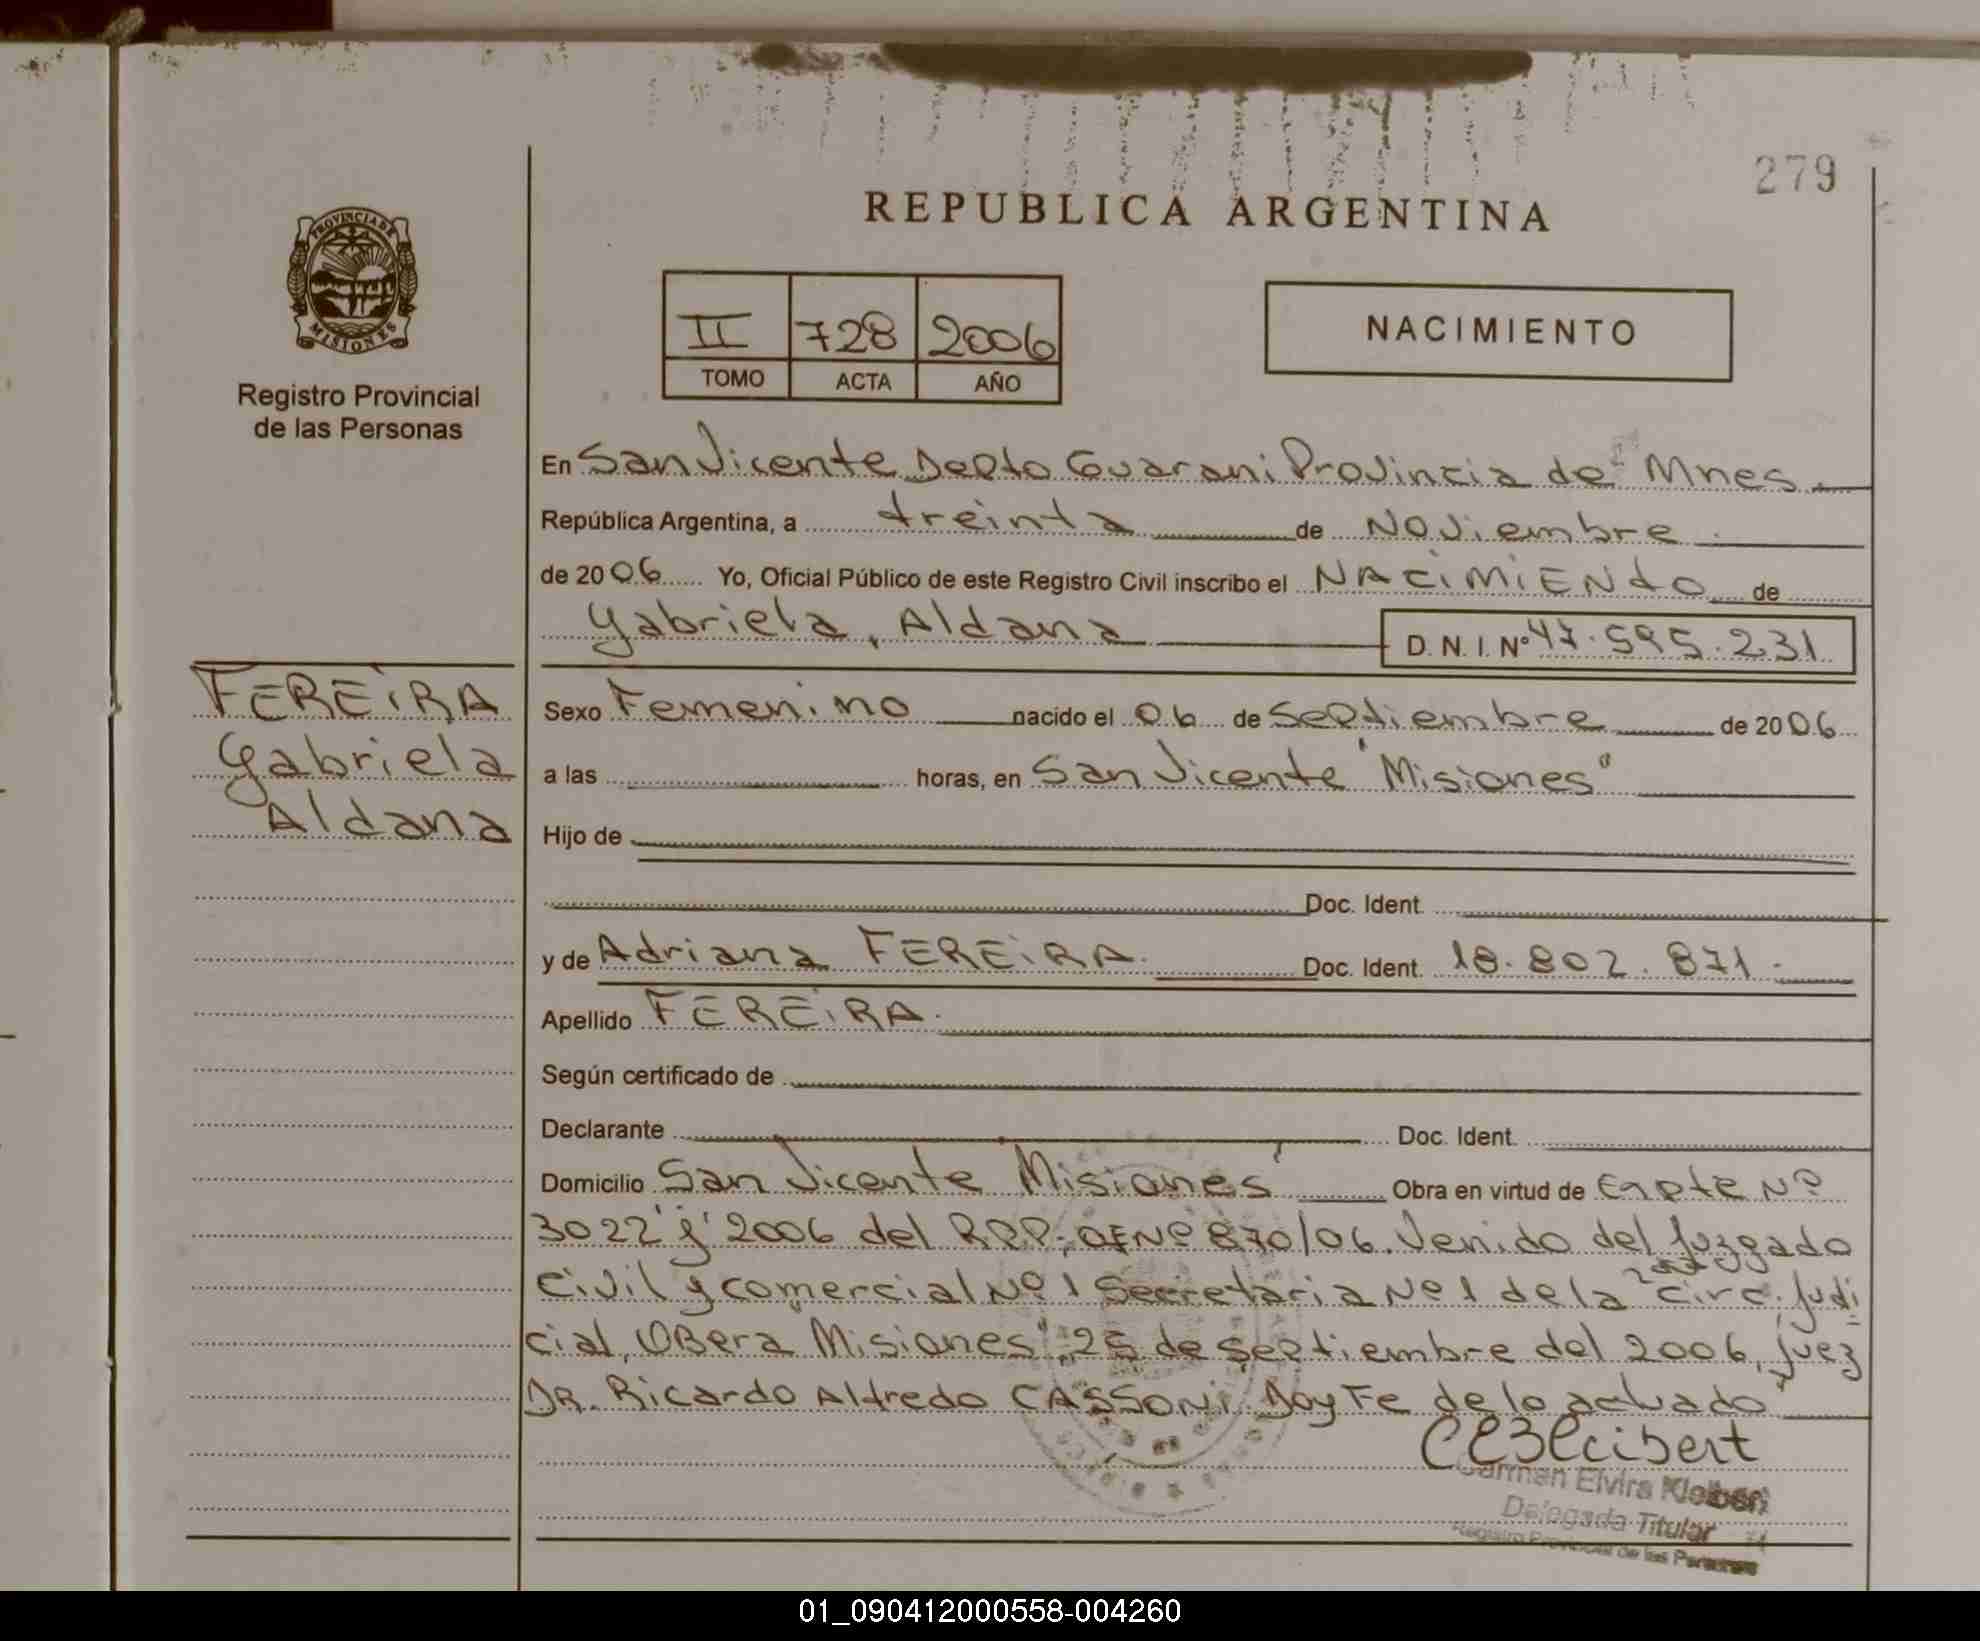 279
REPUBLICA ARGENTINA
PROVINCIA DE
MISIONES
Registro Provincial
de las Personas
II 728 2006
TOMO ACTA AÑO
NACIMIENTO
En San Vicente Depto Guarani Provincia de Mnes.
República Argentina, a treinta de Noviembre
de 2006 Yo, Oficial Público de este Registro Civil inscribo el NACIMIENTO de
Gabriela, Aldana D. N. I. Nº 47.595.231
FEREIRA
Gabriela
Aldana
Sexo Femenino nacido el 06 de Septiembre de 2006
a las horas, en San Vicente "Misiones"
Hijo de
Doc. Ident.
y de Adriana FEREIRA. Doc. Ident. 18.802.871.
Apellido FEREIRA.
Según certificado de
Declarante Doc. Ident.
Domicilio San Vicente Misiones Obra en virtud de Expte Nº
3022 "j" 2006 del RPP. OFNº 870/06. Venido del Juzgado
Civil y comercial Nº 1 Secretaria Nº 1 de la 2da circ. Judi
cial, OBera Misiones", 25 de septiembre del 2006, Juez
DR. Ricardo Alfredo CASSONi. Doy Fe de lo actuado
Carmen Elvira Kleibert
Delegada Titular
Registro Provincial de las Personas
01_090412000558-004260